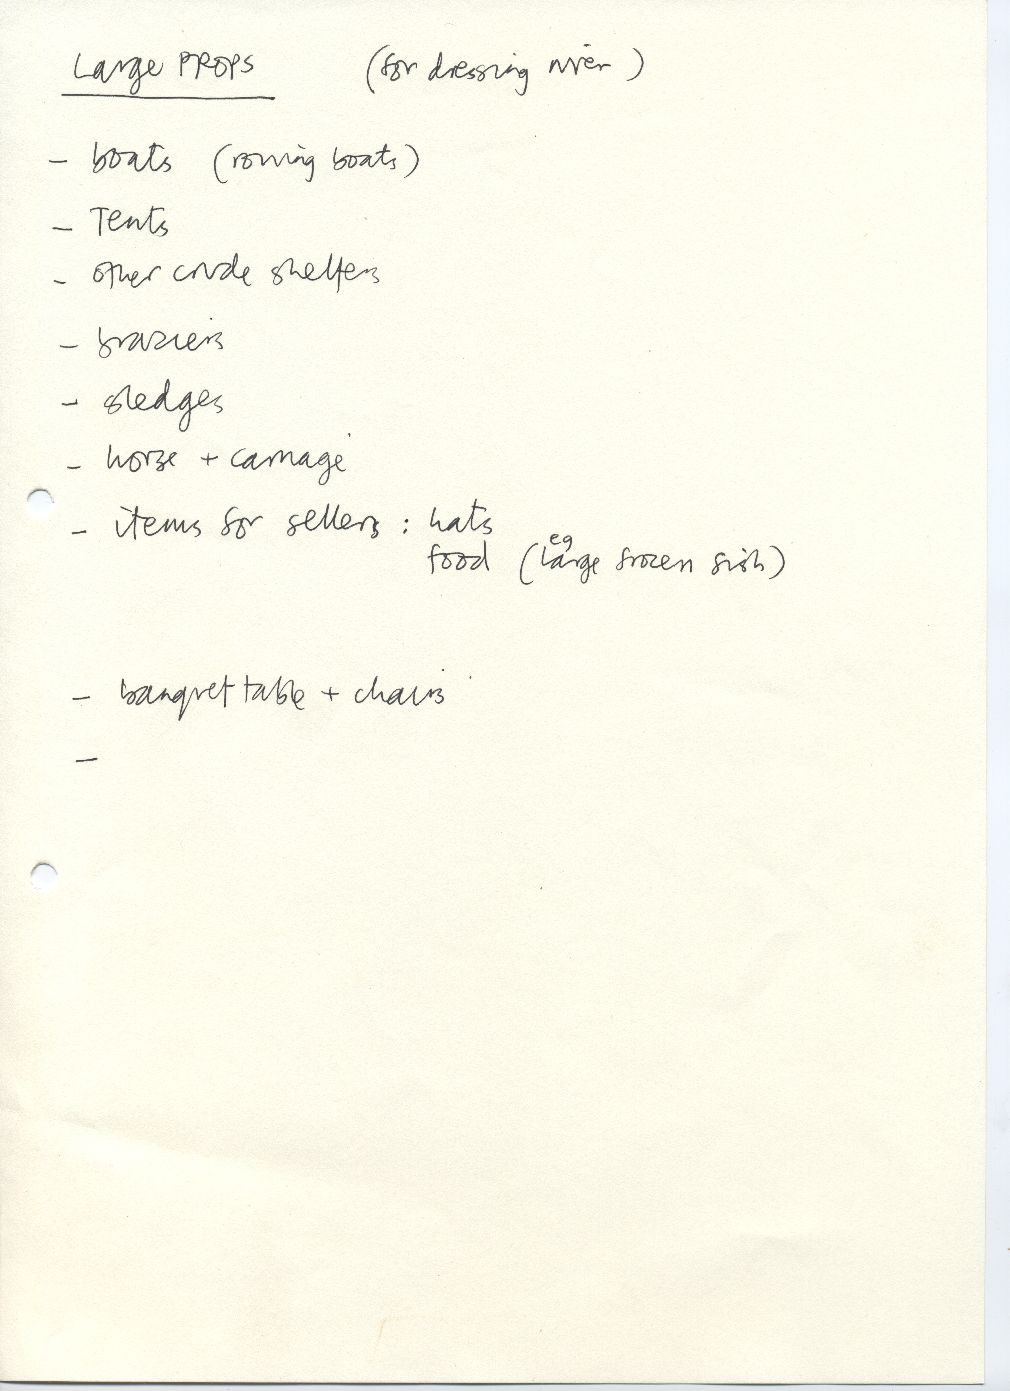 Large PROPS (for dressing river)
- boats (rowing boats)
- Tents
- other crude shelters
- braziers
- sledges
- horse + carriage
- items for sellers : hats
food (eg large frozen fish)
- banquet table + chairs
-